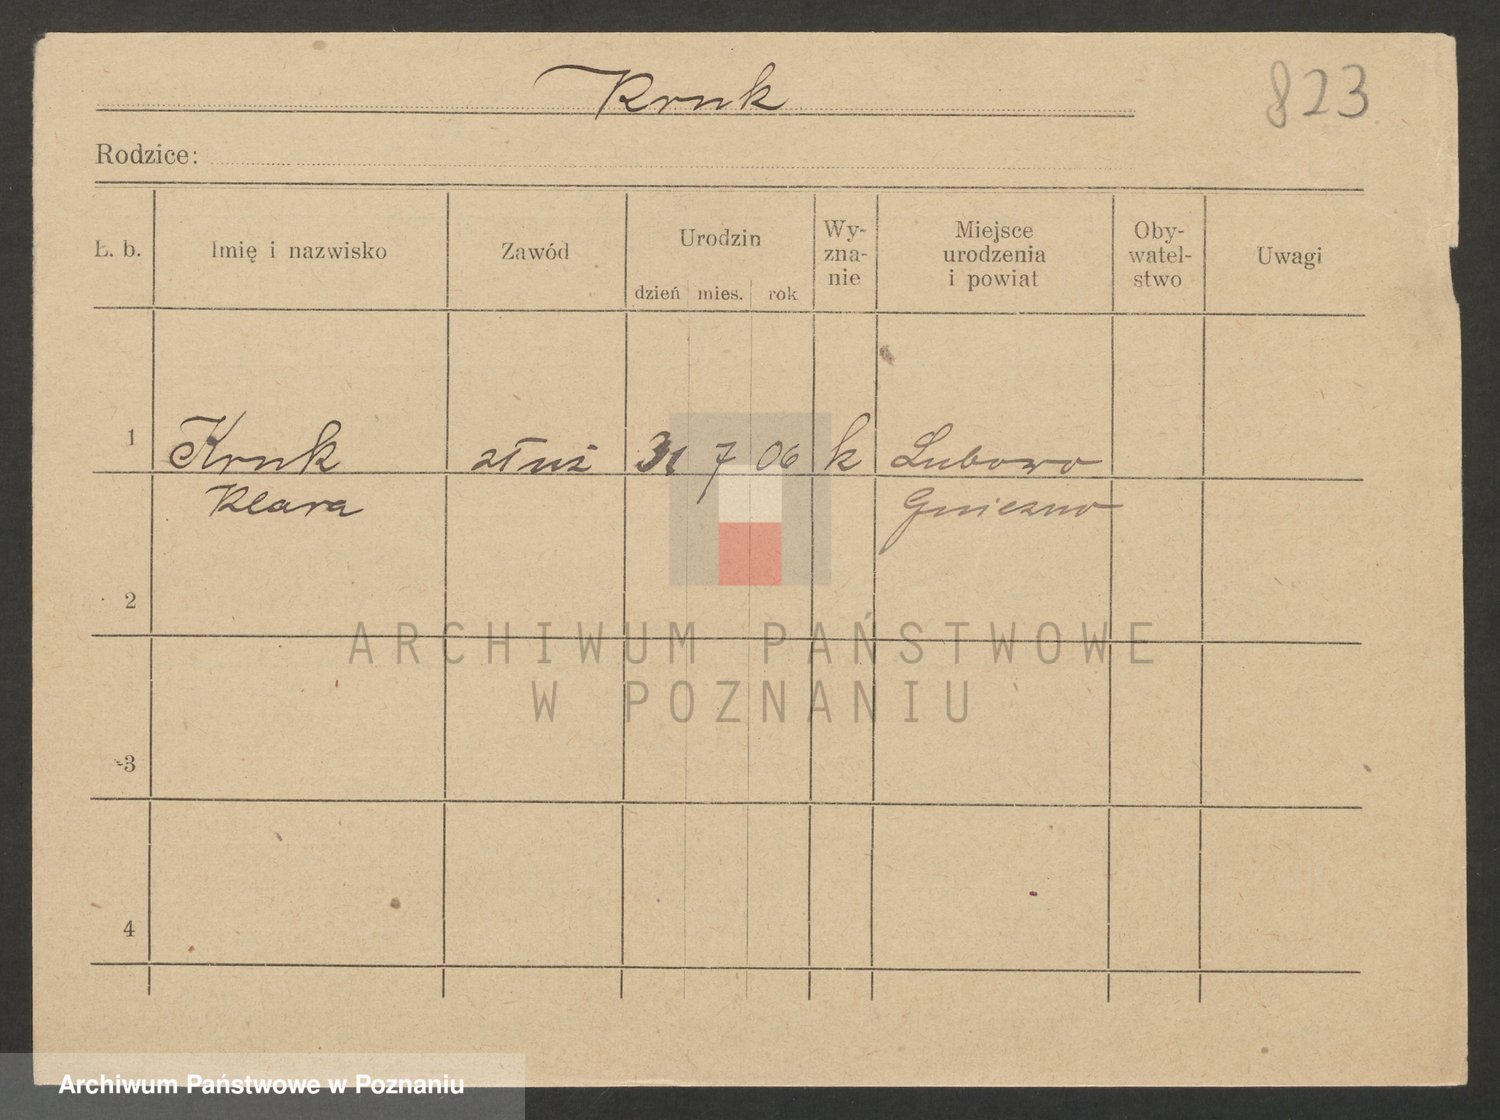 Kruk
823
Rodzice:
L. b.
Imię i nazwisko
Zawód
Urodzin
dzień mies. rok
Wy-
zna-
nie
Miejsce
urodzenia
i powiat
Oby-
watel-
stwo
Uwagi
1 Kruk służ 31 7 06 k Lubowo
Klara Gniezno
2
ARCHIWUM PAŃSTWOWE
W POZNANIU
3
4
Archiwum Państwowe w Poznaniu